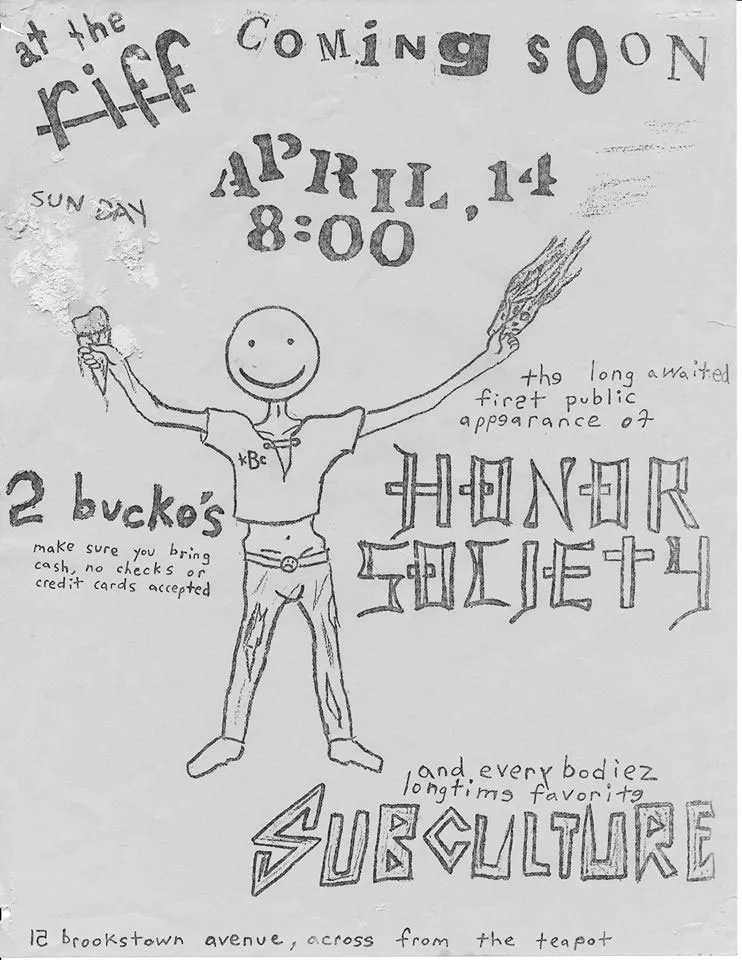 at the
riff
COMiNg SOON
APRIL, 14
8:00
SUN DAY
the long awaited
first public
appearance of
HONOR
SOCIETY
KBC
2 bucko's
make sure you bring
cash, no checks or
credit cards accepted
and every bodiez
longtime favorite
SUBCULTURE
12 brookstown avenue, across from the teapot